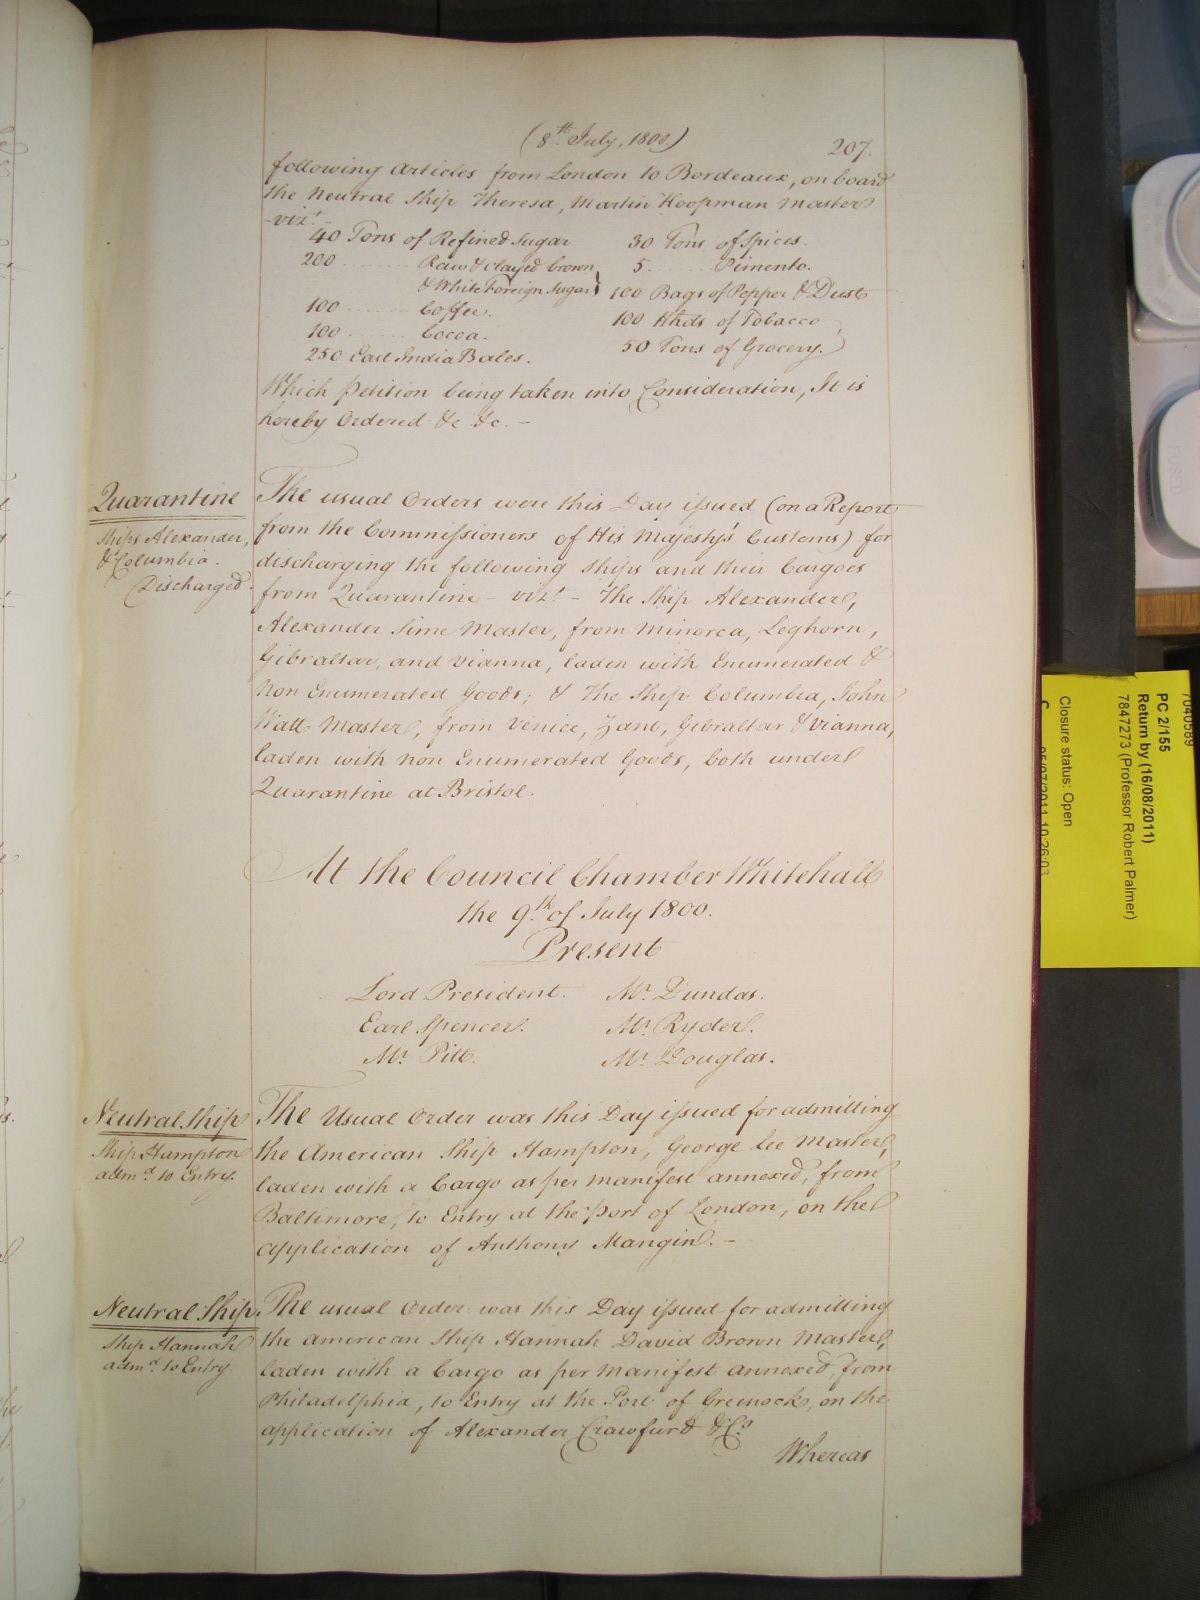 (8th July, 1800)
207.
following Articles from London to Bordeaux, on board
the Neutral Ship Theresa, Martin Koopman Master
-vizt.-
40 Tons of Refined Sugar
200 ........ Raw & clayed brown
& White Foreign Sugar
100 ........ Coffee.
100 ........ Cocoa.
250 East India Bales.
30 Tons of Spices.
5 ........ Pimento.
100 Bags of Pepper & Dust
100 Hhds of Tobacco
50 Tons of Grocery.
Which Petition being taken into Consideration, It is
hereby Ordered &c. &c. -
Quarantine
Ships Alexander,
& Columbia.
Discharged.
The usual Orders were this Day issued (on a Report
from the Commissioners of His Majesty's Customs) for
discharging the following Ships and their Cargoes
from Quarantine - vizt. - The Ship Alexander,
Alexander Sime Master, from Minorca, Leghorn,
Gibraltar, and Vianna, laden with Enumerated &
Non Enumerated Goods; & The Ship Columbia, John
Watt Master, from Venice, Zant, Gibraltar & Vianna,
laden with non Enumerated Goods, both under
Quarantine at Bristol.
At the Council Chamber Whitehall
the 9th of July 1800.
Present
Lord President.
Earl Spencer.
Mr. Pitt.
Mr. Dundas.
Mr. Ryder.
Mr. Douglas.
Neutral Ship
Ship Hampton
admd. to Entry.
The Usual Order was this Day issued for admitting
the American Ship Hampton, George Lee Master,
laden with a Cargo as per Manifest annexed, from
Baltimore, to Entry at the Port of London, on the
application of Anthony Mangin. -
Neutral Ship
Ship Hannah
admd. to Entry.
The usual Order was this Day issued for admitting
the American Ship Hannah David Brown Master,
laden with a Cargo as per Manifest annexed, from
Philadelphia, to Entry at the Port of Greenock, on the
application of Alexander Crawfurd & Co.
Whereas
7040589
PC 2/155
Return by (16/08/2011)
7847273 (Professor Robert Palmer)
Closure status: Open